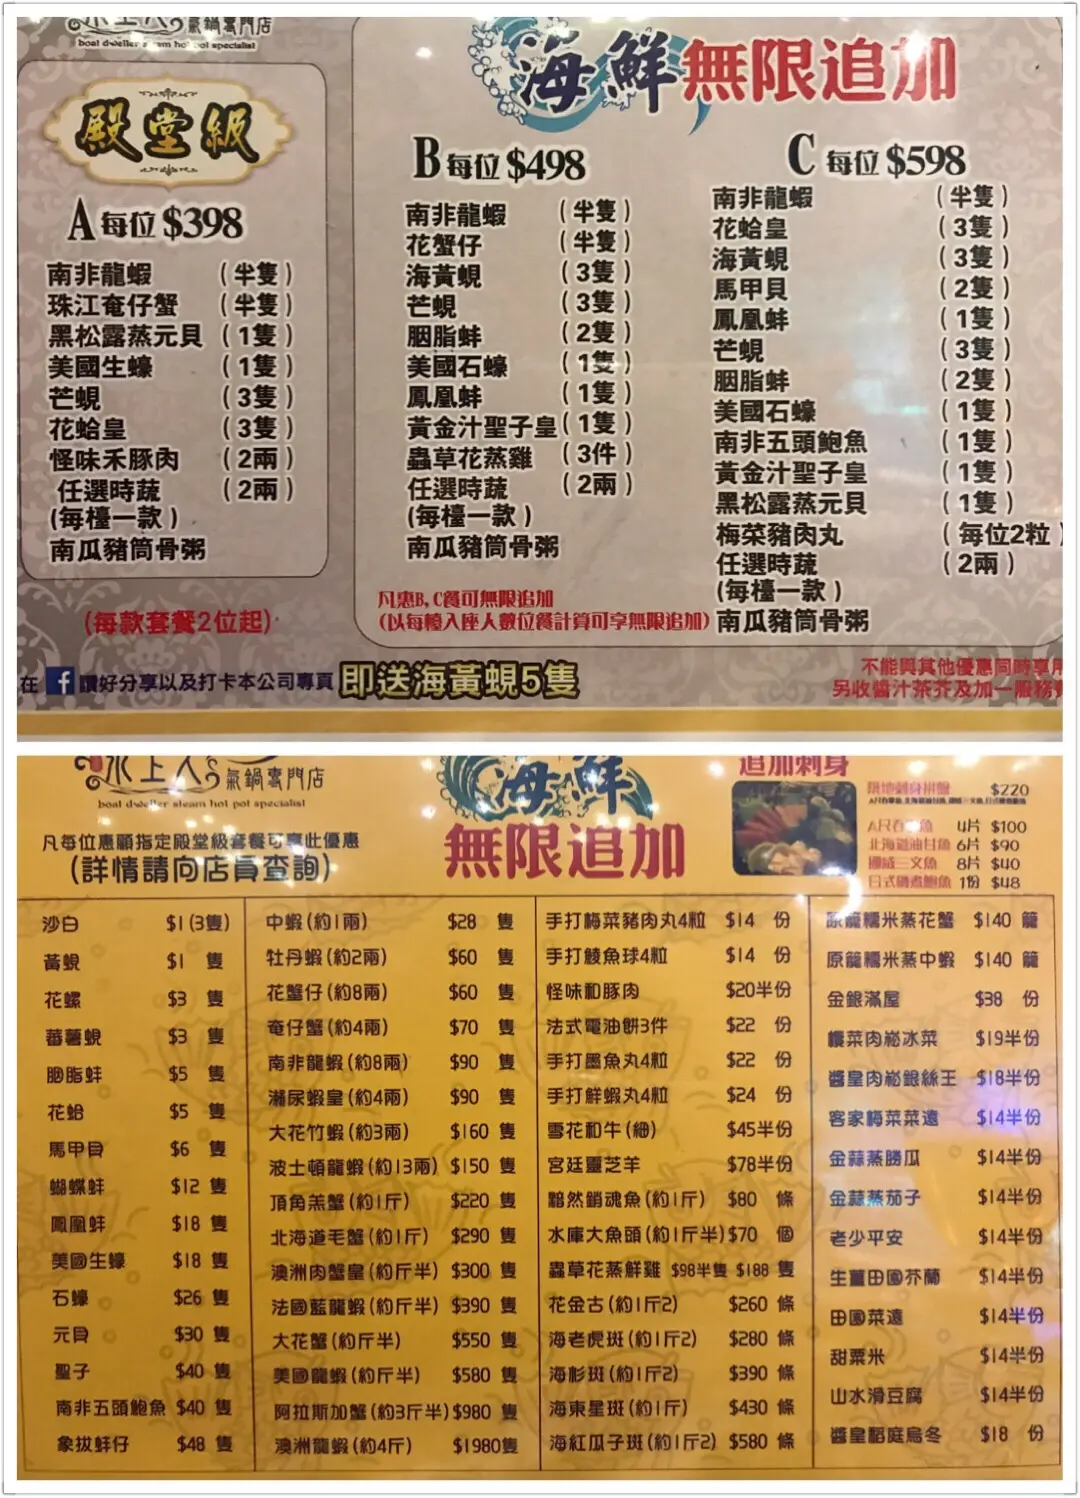 氣鍋專門店
boat dweller steam hot pot specialist
殿堂級
A 每位 $398
南非龍蝦 (半隻)
珠江奄仔蟹 (半隻)
黑松露蒸元貝 (1隻)
美國生蠔 (1隻)
芒蜆 (3隻)
花蛤皇 (3隻)
怪味禾豚肉 (2兩)
任選時蔬 (2兩)
(每檯一款)
南瓜豬筒骨粥
(每款套餐2位起)
海鮮無限追加
B 每位 $498
南非龍蝦 (半隻)
花蟹仔 (半隻)
海黃蜆 (3隻)
芒蜆 (3隻)
胭脂蚌 (2隻)
美國石蠔 (1隻)
鳳凰蚌 (1隻)
黃金汁聖子皇 (1隻)
蟲草花蒸雞 (3件)
任選時蔬 (2兩)
(每檯一款)
南瓜豬筒骨粥
凡惠B,C餐可無限追加
(以每檯入座人數位餐計算可享無限追加)
C 每位 $598
南非龍蝦 (半隻)
花蛤皇 (3隻)
海黃蜆 (3隻)
馬甲貝 (2隻)
鳳凰蚌 (1隻)
芒蜆 (3隻)
胭脂蚌 (2隻)
美國石蠔 (1隻)
南非五頭鮑魚 (1隻)
黃金汁聖子皇 (1隻)
黑松露蒸元貝 (1隻)
梅菜豬肉丸 (每位2粒)
任選時蔬 (2兩)
(每檯一款)
南瓜豬筒骨粥
在 f 讚好分享以及打卡本公司專頁 即送海黃蜆5隻
不能與其他優惠同時享用
另收醬汁茶芥及加一服務費
水上人 氣鍋專門店
boat dweller steam hot pot specialist
凡每位惠顧指定殿堂級套餐可享此優惠
(詳情請向店員查詢)
海鮮
無限追加
追加刺身
$220
4片 $100
北海道油甘魚 6片 $90
挪威三文魚 8片 $40
日式 鮑魚 1份 $48
沙白 $1 (3隻)
黃蜆 $1 隻
花螺 $3 隻
蕃薯蜆 $3 隻
胭脂蚌 $5 隻
花蛤 $5 隻
馬甲貝 $6 隻
蝴蝶蚌 $12 隻
鳳凰蚌 $18 隻
美國生蠔 $18 隻
石蠔 $26 隻
元貝 $30 隻
聖子 $40 隻
南非五頭鮑魚 $40 隻
象拔蚌仔 $48 隻
中蝦(約1兩) $28 隻
牡丹蝦(約2兩) $60 隻
花蟹仔(約8兩) $60 隻
奄仔蟹(約4兩) $70 隻
南非龍蝦(約8兩) $90 隻
瀨尿蝦皇(約4兩) $90 隻
大花竹蝦(約3兩) $160 隻
波士頓龍蝦(約13兩) $150 隻
頂角羔蟹(約1斤) $220 隻
北海道毛蟹(約1斤) $290 隻
澳洲肉蟹皇(約斤半) $300 隻
法國藍龍蝦(約斤半) $390 隻
大花蟹(約斤半) $550 隻
美國龍蝦(約斤半) $580 隻
阿拉斯加蟹(約3斤半) $980 隻
澳洲龍蝦(約4斤) $1980隻
手打梅菜豬肉丸4粒 $14 份
手打鯪魚球4粒 $14 份
怪味和豚肉 $20半份
法式電油餅3件 $22 份
手打墨魚丸4粒 $22 份
手打鮮蝦丸4粒 $24 份
雪花和牛(細) $45半份
宮廷靈芝羊 $78半份
黯然銷魂魚(約1斤) $80 條
水庫大魚頭(約1斤半) $70 個
蟲草花蒸鮮雞 $98半隻 $188 隻
花金古(約1斤2) $260 條
海老虎斑(約1斤2) $280 條
海杉斑(約1斤2) $390 條
海東星斑(約1斤) $430 條
海紅瓜子斑(約1斤2) $580 條
原籠糯米蒸花蟹 $140 籠
原籠糯米蒸中蝦 $140 籠
金銀滿屋 $38 份
欖菜肉崧冰菜 $19半份
醬皇肉崧銀絲王 $18半份
客家梅菜菜遠 $14半份
金蒜蒸勝瓜 $14半份
金蒜蒸茄子 $14半份
老少平安 $14半份
生薑田園芥蘭 $14半份
田園菜遠 $14半份
甜粟米 $14半份
山水滑豆腐 $14半份
醬皇稻庭烏冬 $18 份